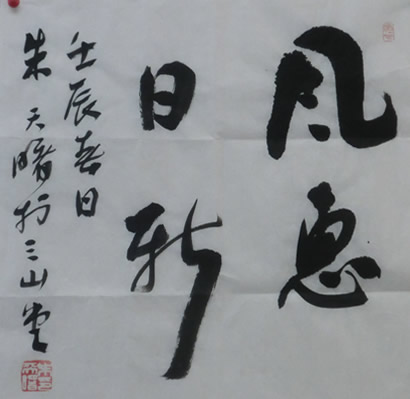 风恵
日新
壬辰春日
朱天曙扵三山堂